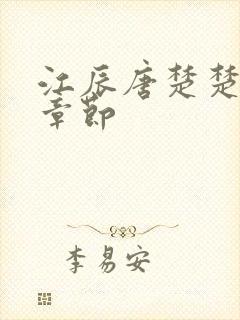 江辰唐楚楚
章節
李易安